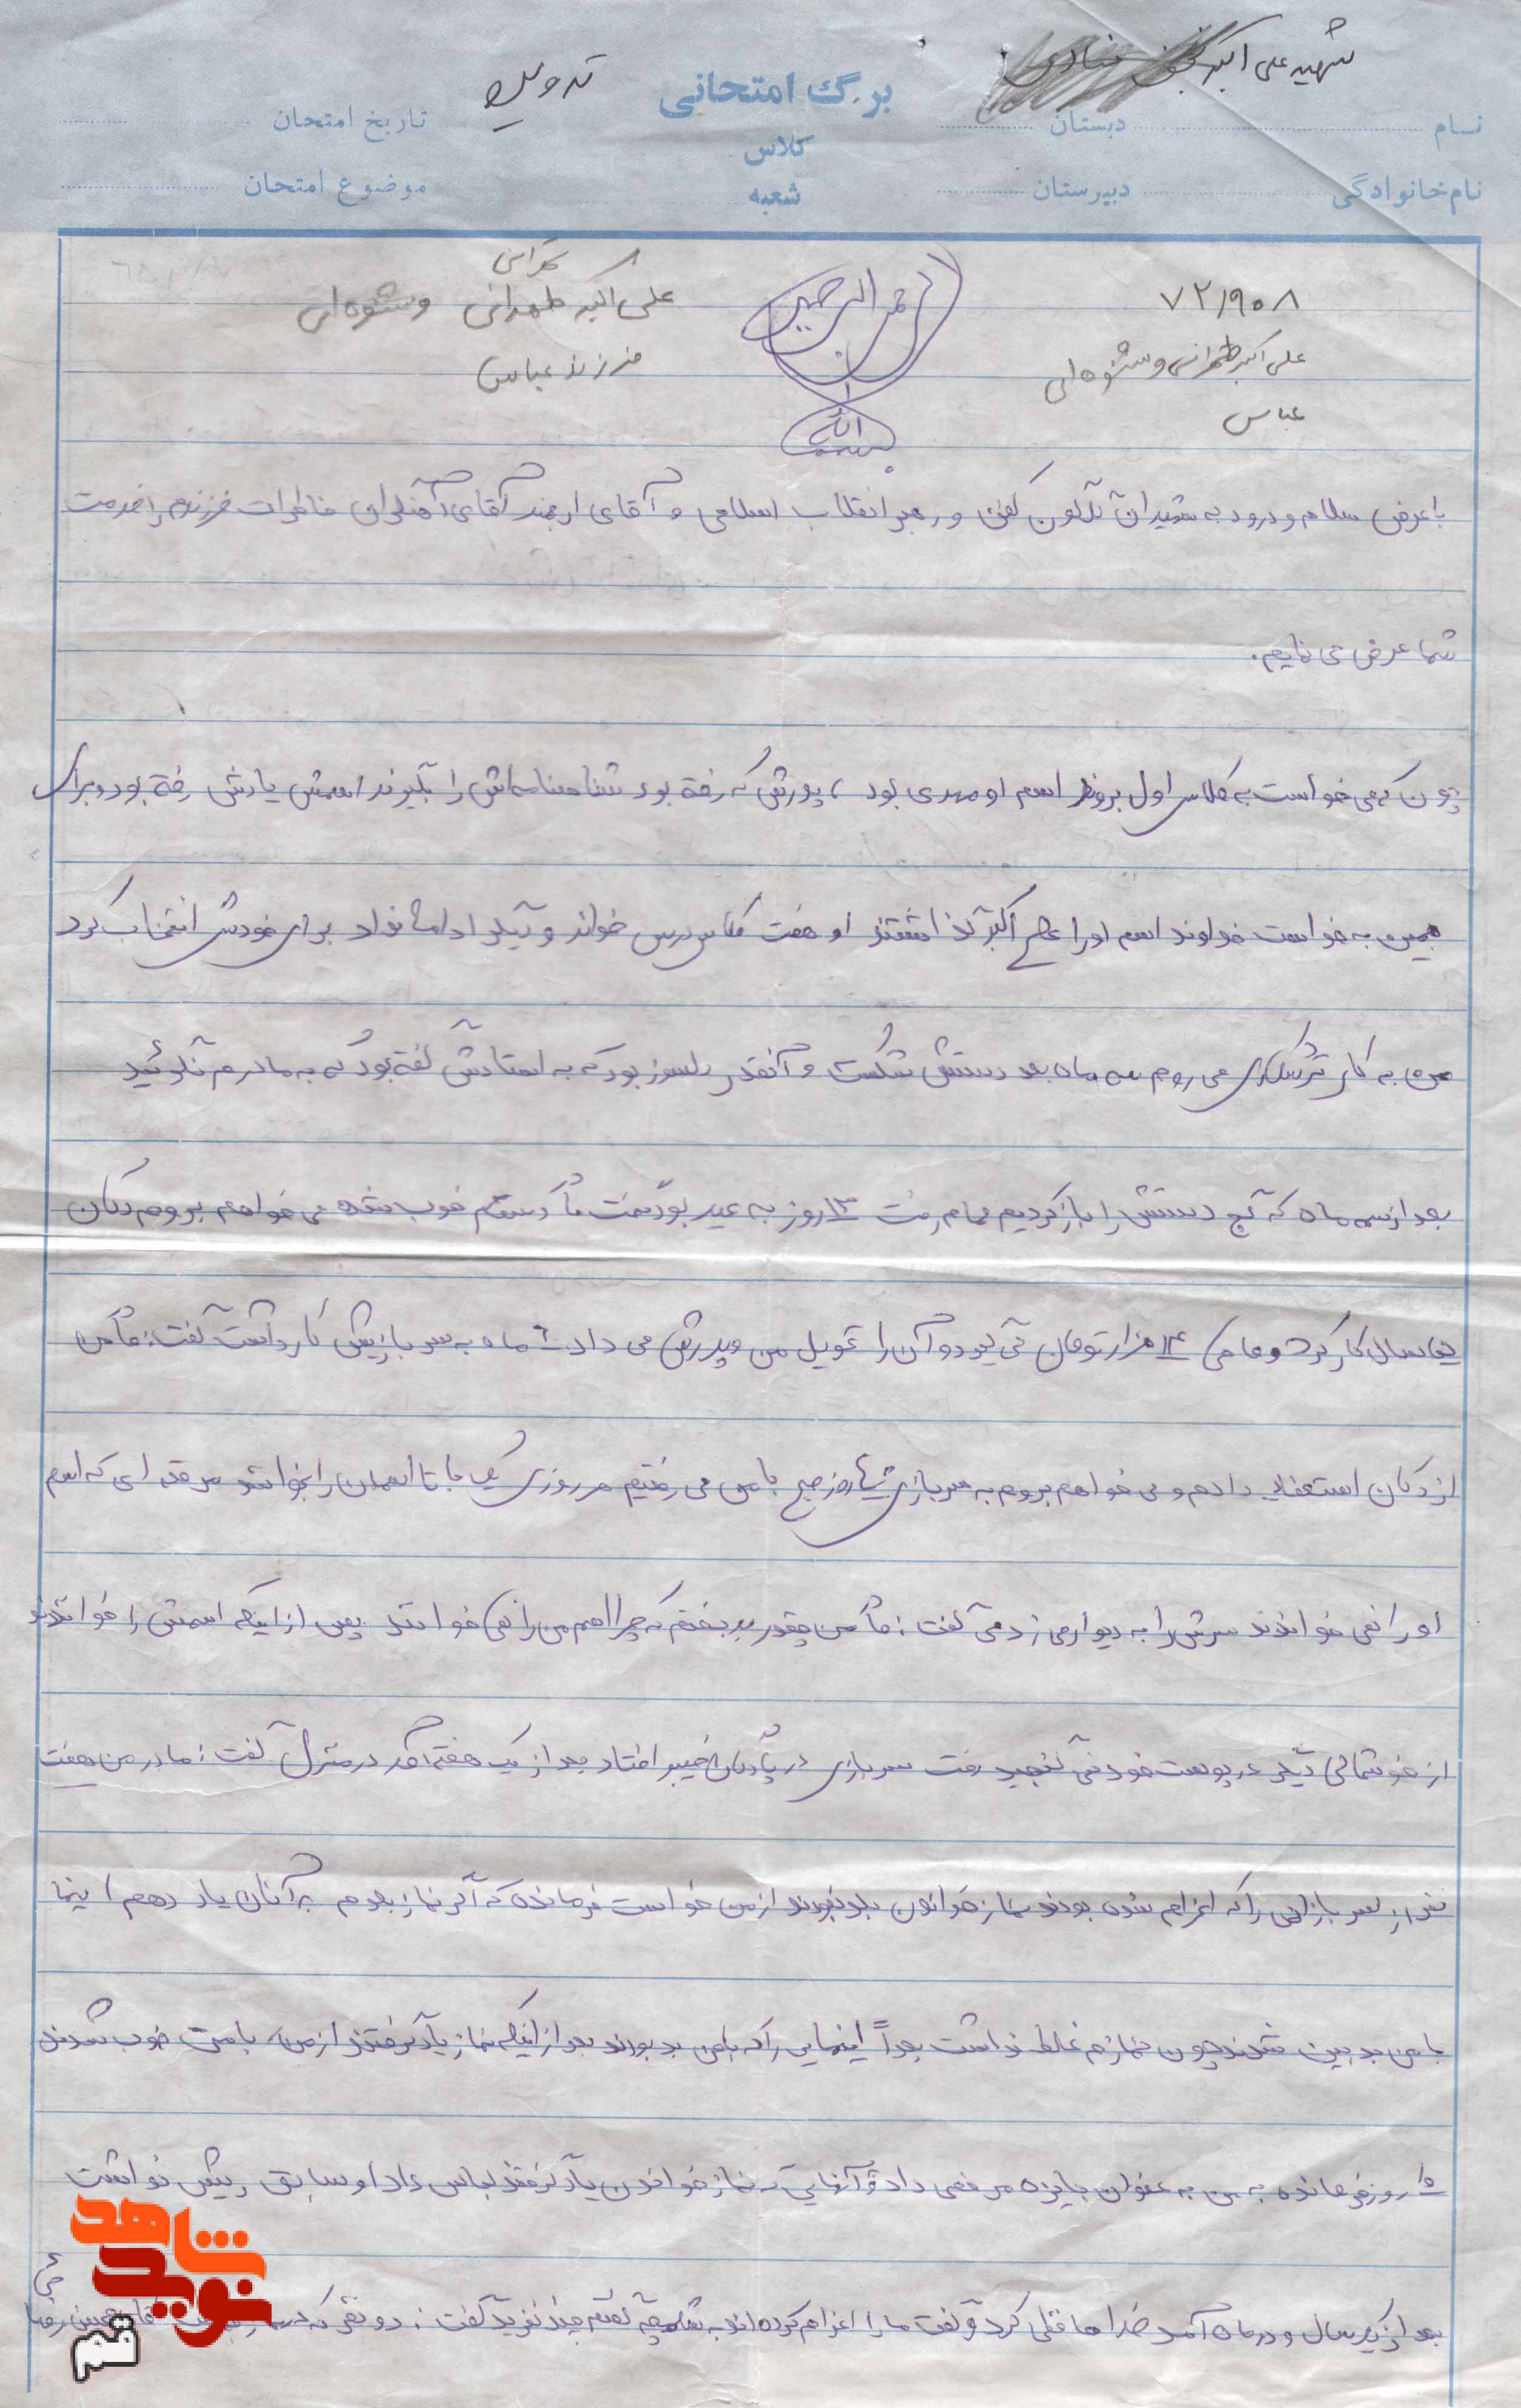 شهید علی اکبر
تدوین
برگ امتحانی
نام دبستان تاریخ امتحان
کلاس
نام خانوادگی دبیرستان موضوع امتحان
شعبه
بسم الله الرحمن الرحیم
۷۲/۹۰۸
علی اکبر طهرانی وشنوه‌ای
عباس
تهرانی
علی اکبر طهرانی وشنوه‌ای
فرزند عباس
با عرض سلام و درود به شهیدان گلگون کفن و رهبر انقلاب اسلامی و آقای ارجمند آقای خاطرات فرزندم را خدمت
شما عرض می نمایم.
چون که می خواست به کلاس اول برود اسم او مهدی بود، پدرش که رفته بود شناسنامه‌اش را بگیرند اسمش یادش رفته بود و برای
همین به خواست خداوند اسم او را علی اکبر گذاشتند او هفت کلاس درس خواند و دیگر ادامه نداد برای خودش انتخاب کرد
من به کار می روم سه ماه بعد دستش شکست و آنقدر دلسوز بود که به استادش گفته بود که به مادرم نگوئید
بعد از سه ماه که گچ دستش را باز کردیم حمام رفت ۱۳ روز به عید بود گفت ماما دستم خوب شده می خواهم بروم دکان
سال کار کرد و ماهی ۱۴ هزار تومان می گیرد و آن را تحویل من و پدرش می داد ۶ ماه به سربازیش کار داشت گفت: ماما من
از دکان استعفا دادم و می خواهم بروم به سربازی روز صبح با من می رفتیم هر روزی یک جا تا اسمان را بخوانند هر دفعه ای که اسم
او را نمی خواندند سرش را به دیوار می زد می گفت: ماما من چقدر بدبختم که چرا اسم من را نمی خوانند پس از اینکه اسمش را خواندند
از خوشحالی دیگر در پوست خود نمی گنجید رفت سربازی در پادگان خیبر افتاد بعد از یک هفته آمد در منزل گفت: مادر من هفت
نفر از سربازانی را که اعزام شده بودند نماز خواندن بلد نبودند از من خواست فرمانده که اگر نماز بلدم به آنان یاد دهم اینها
با من بد بین شدند چون نمازم غلط نداشت بعداً اینهایی را که با من بد بودند بعد از اینکه نماز یاد گرفتند از من، با من خوب شدند
۱۵ روز فرمانده به من به عنوان جایزه مرخصی داد و آنهایی که نماز خواندن یاد گرفتند لباس داد او سابق ریش نداشت
بعد از یک سال و دو ماه آمد خدا حافظی کرد و گفت ما را اعزام کرده اند به شلمچه گفتم چند نفرید گفت: دو نفر که
شاهد
نوید
قم